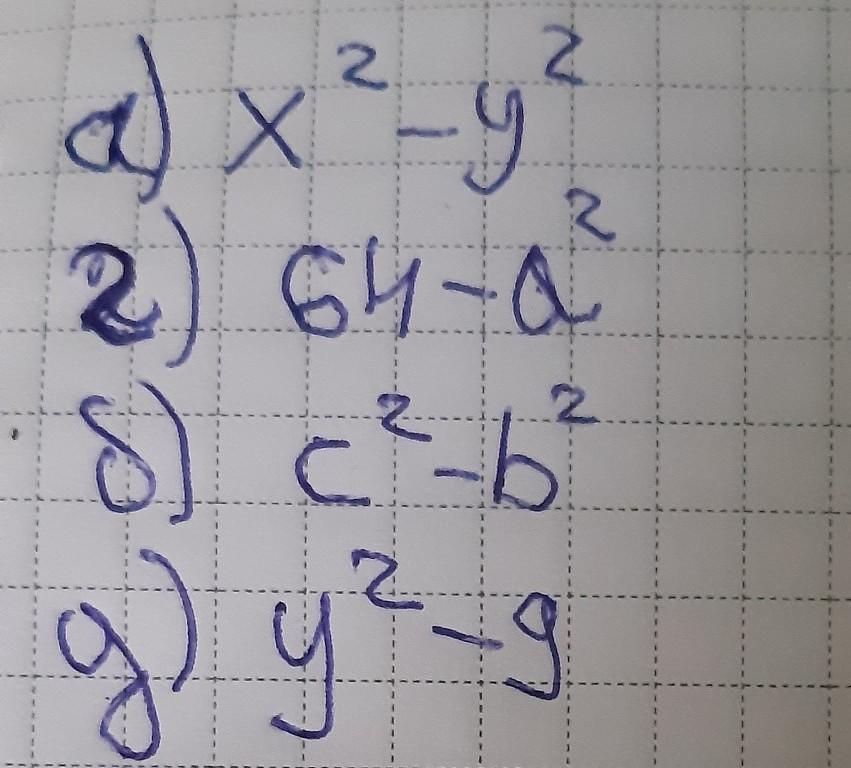 а) x² - y²
г) 64 - a²
б) c² - b²
д) y² - 9